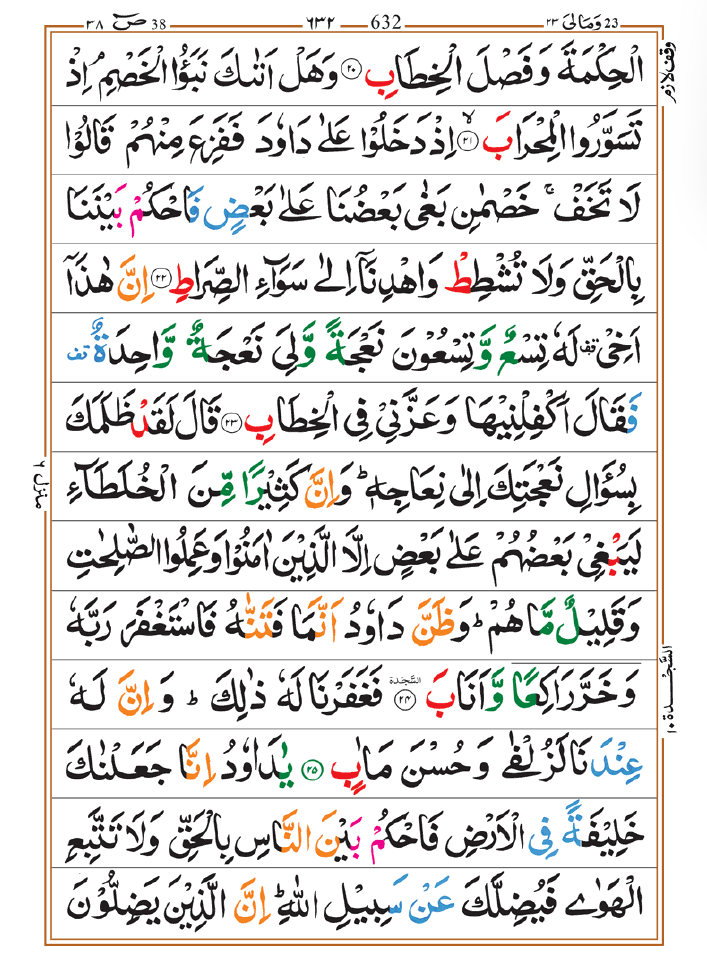 ٣٨ صٓ 38 ٦٣٢ 632 ٢٣ وَمَالِیَ 23
وقف لازم
الْحِكْمَةَ وَفَصْلَ الْخِطَابِ ۲۰ وَهَلْ اَتٰىكَ نَبَؤُا الْخَصْمِ ۘ اِذْ
تَسَوَّرُوا الْمِحْرَابَ ۙ ۲۱ اِذْ دَخَلُوْا عَلٰى دَاوٗدَ فَفَزِعَ مِنْهُمْ قَالُوْا
لَا تَخَفْ ۚ خَصْمٰنِ بَغٰى بَعْضُنَا عَلٰى بَعْضٍ فَاحْكُمْ بَيْنَنَا
بِالْحَقِّ وَلَا تُشْطِطْ وَاهْدِنَاۤ اِلٰى سَوَآءِ الصِّرَاطِ ۲۲ اِنَّ هٰذَاۤ
اَخِیْ قف لَهٗ تِسْعٌ وَّتِسْعُوْنَ نَعْجَةً وَّلِیَ نَعْجَةٌ وَّاحِدَةٌ قف
فَقَالَ اَكْفِلْنِيْهَا وَعَزَّنِیْ فِی الْخِطَابِ ۲۳ قَالَ لَقَدْ ظَلَمَكَ
بِسُؤَالِ نَعْجَتِكَ اِلٰى نِعَاجِهٖ ؕ وَاِنَّ كَثِيْرًا مِّنَ الْخُلَطَآءِ
منزل ٦
لَيَبْغِیْ بَعْضُهُمْ عَلٰى بَعْضٍ اِلَّا الَّذِيْنَ اٰمَنُوْا وَعَمِلُوا الصّٰلِحٰتِ
وَقَلِيْلٌ مَّا هُمْ ؕ وَظَنَّ دَاوٗدُ اَنَّمَا فَتَنّٰهُ فَاسْتَغْفَرَ رَبَّهٗ
وَخَرَّ رَاكِعًا وَّاَنَابَ السَّجْدَة ۲۴ فَغَفَرْنَا لَهٗ ذٰلِكَ ؕ وَاِنَّ لَهٗ
السَّجْدَة ۱۰
عِنْدَنَا لَزُلْفٰى وَحُسْنَ مَاٰبٍ ۲۵ يٰدَاوٗدُ اِنَّا جَعَلْنٰكَ
خَلِيْفَةً فِی الْاَرْضِ فَاحْكُمْ بَيْنَ النَّاسِ بِالْحَقِّ وَلَا تَتَّبِعِ
الْهَوٰى فَيُضِلَّكَ عَنْ سَبِيْلِ اللّٰهِ ؕ اِنَّ الَّذِيْنَ يَضِلُّوْنَ